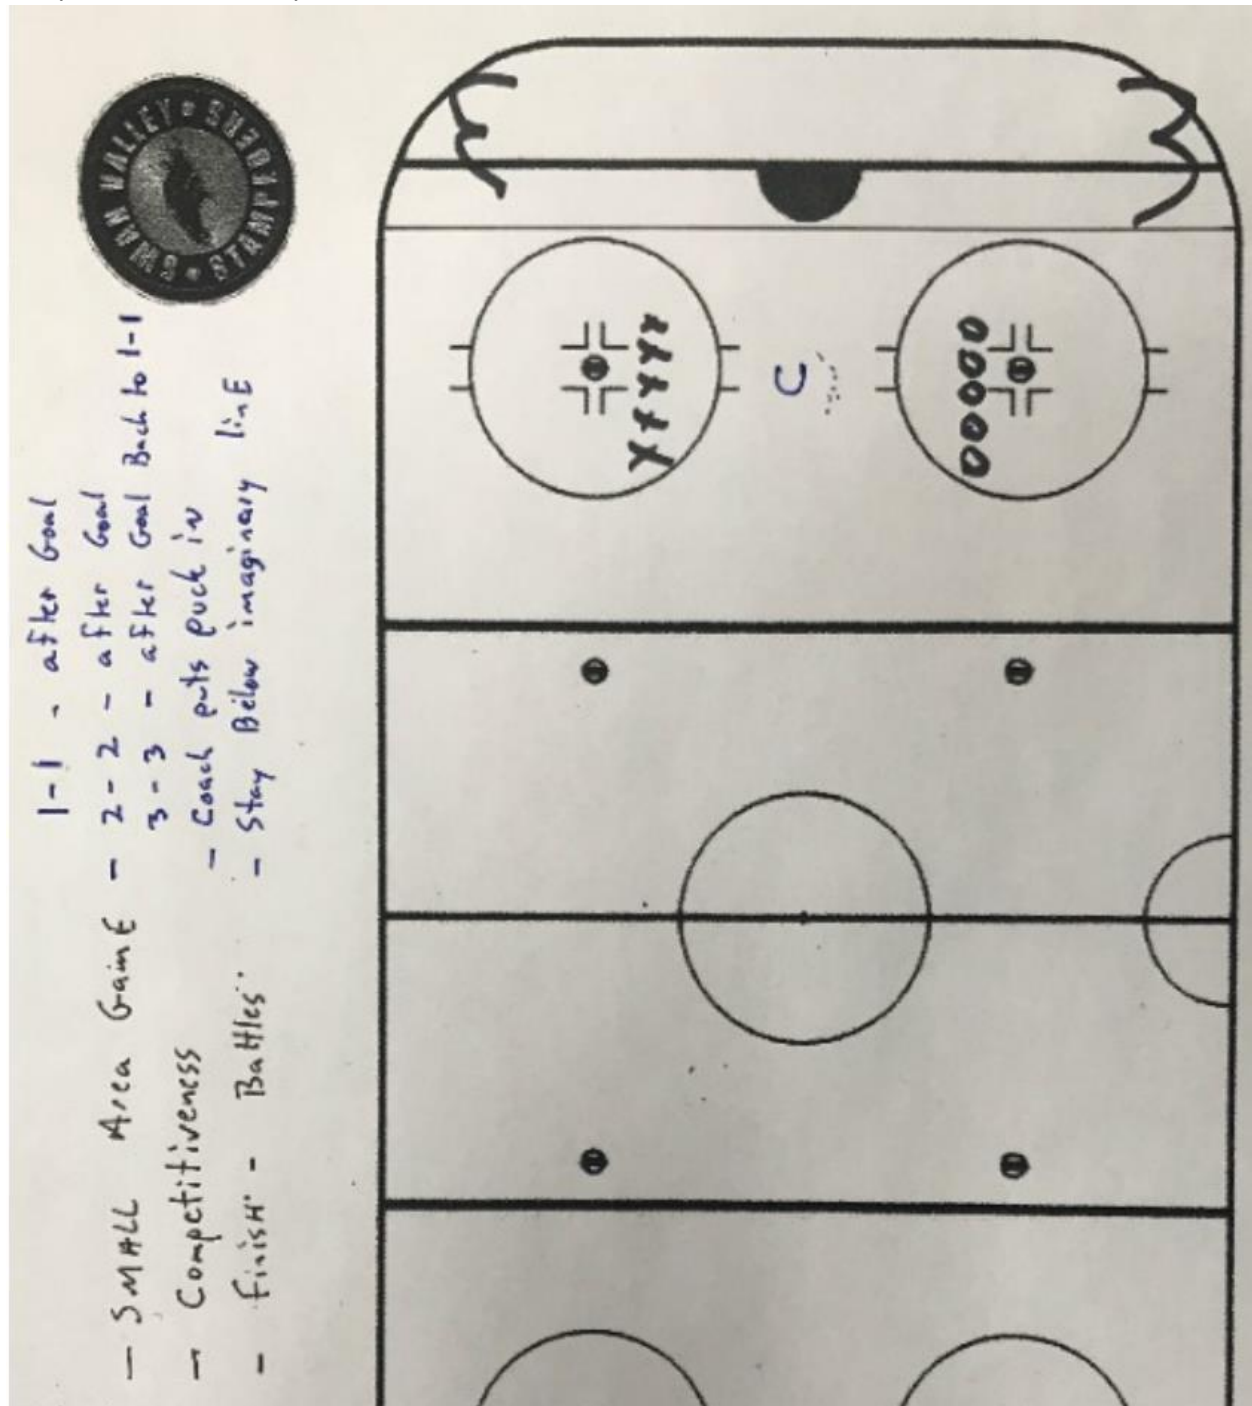 SWAN VALLEY • STAMPEDERS •
1-1 - after Goal
— SMALL Area GamE - 2-2 - after Goal
3-3 - after Goal Back to 1-1
- Competitiveness - Coach puts puck in
- FinisH - Battles - Stay Below imaginary linE
xxxxx
C
OOOOO